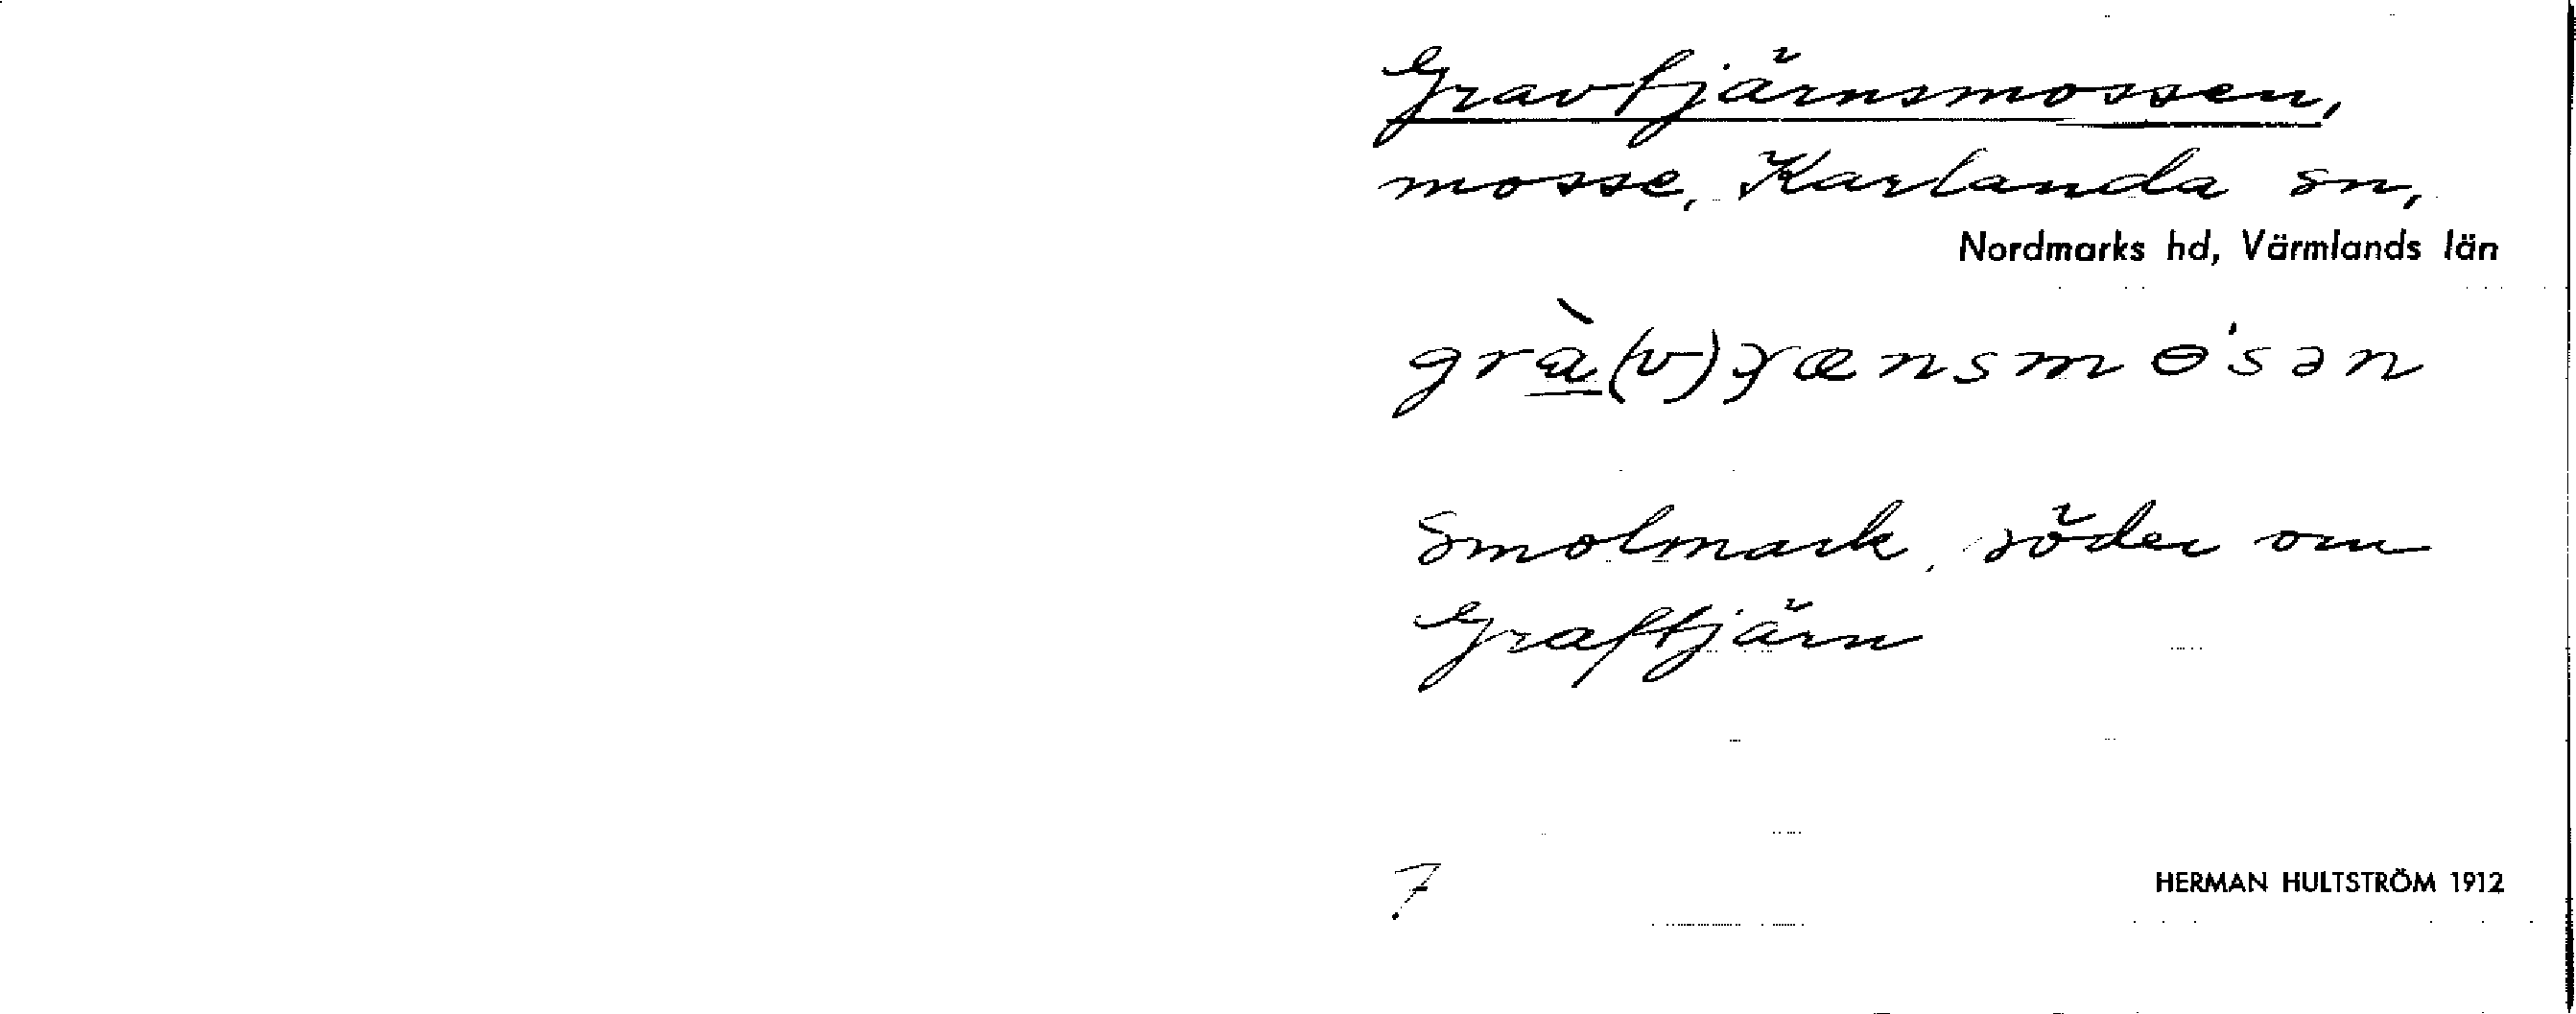 Gravtjärnsmossen,
mosse, Karlanda sn,
Nordmarks hd, Värmlands län
Smolmark, söder om
Graftjärn
7
HERMAN HULTSTRÖM 1912